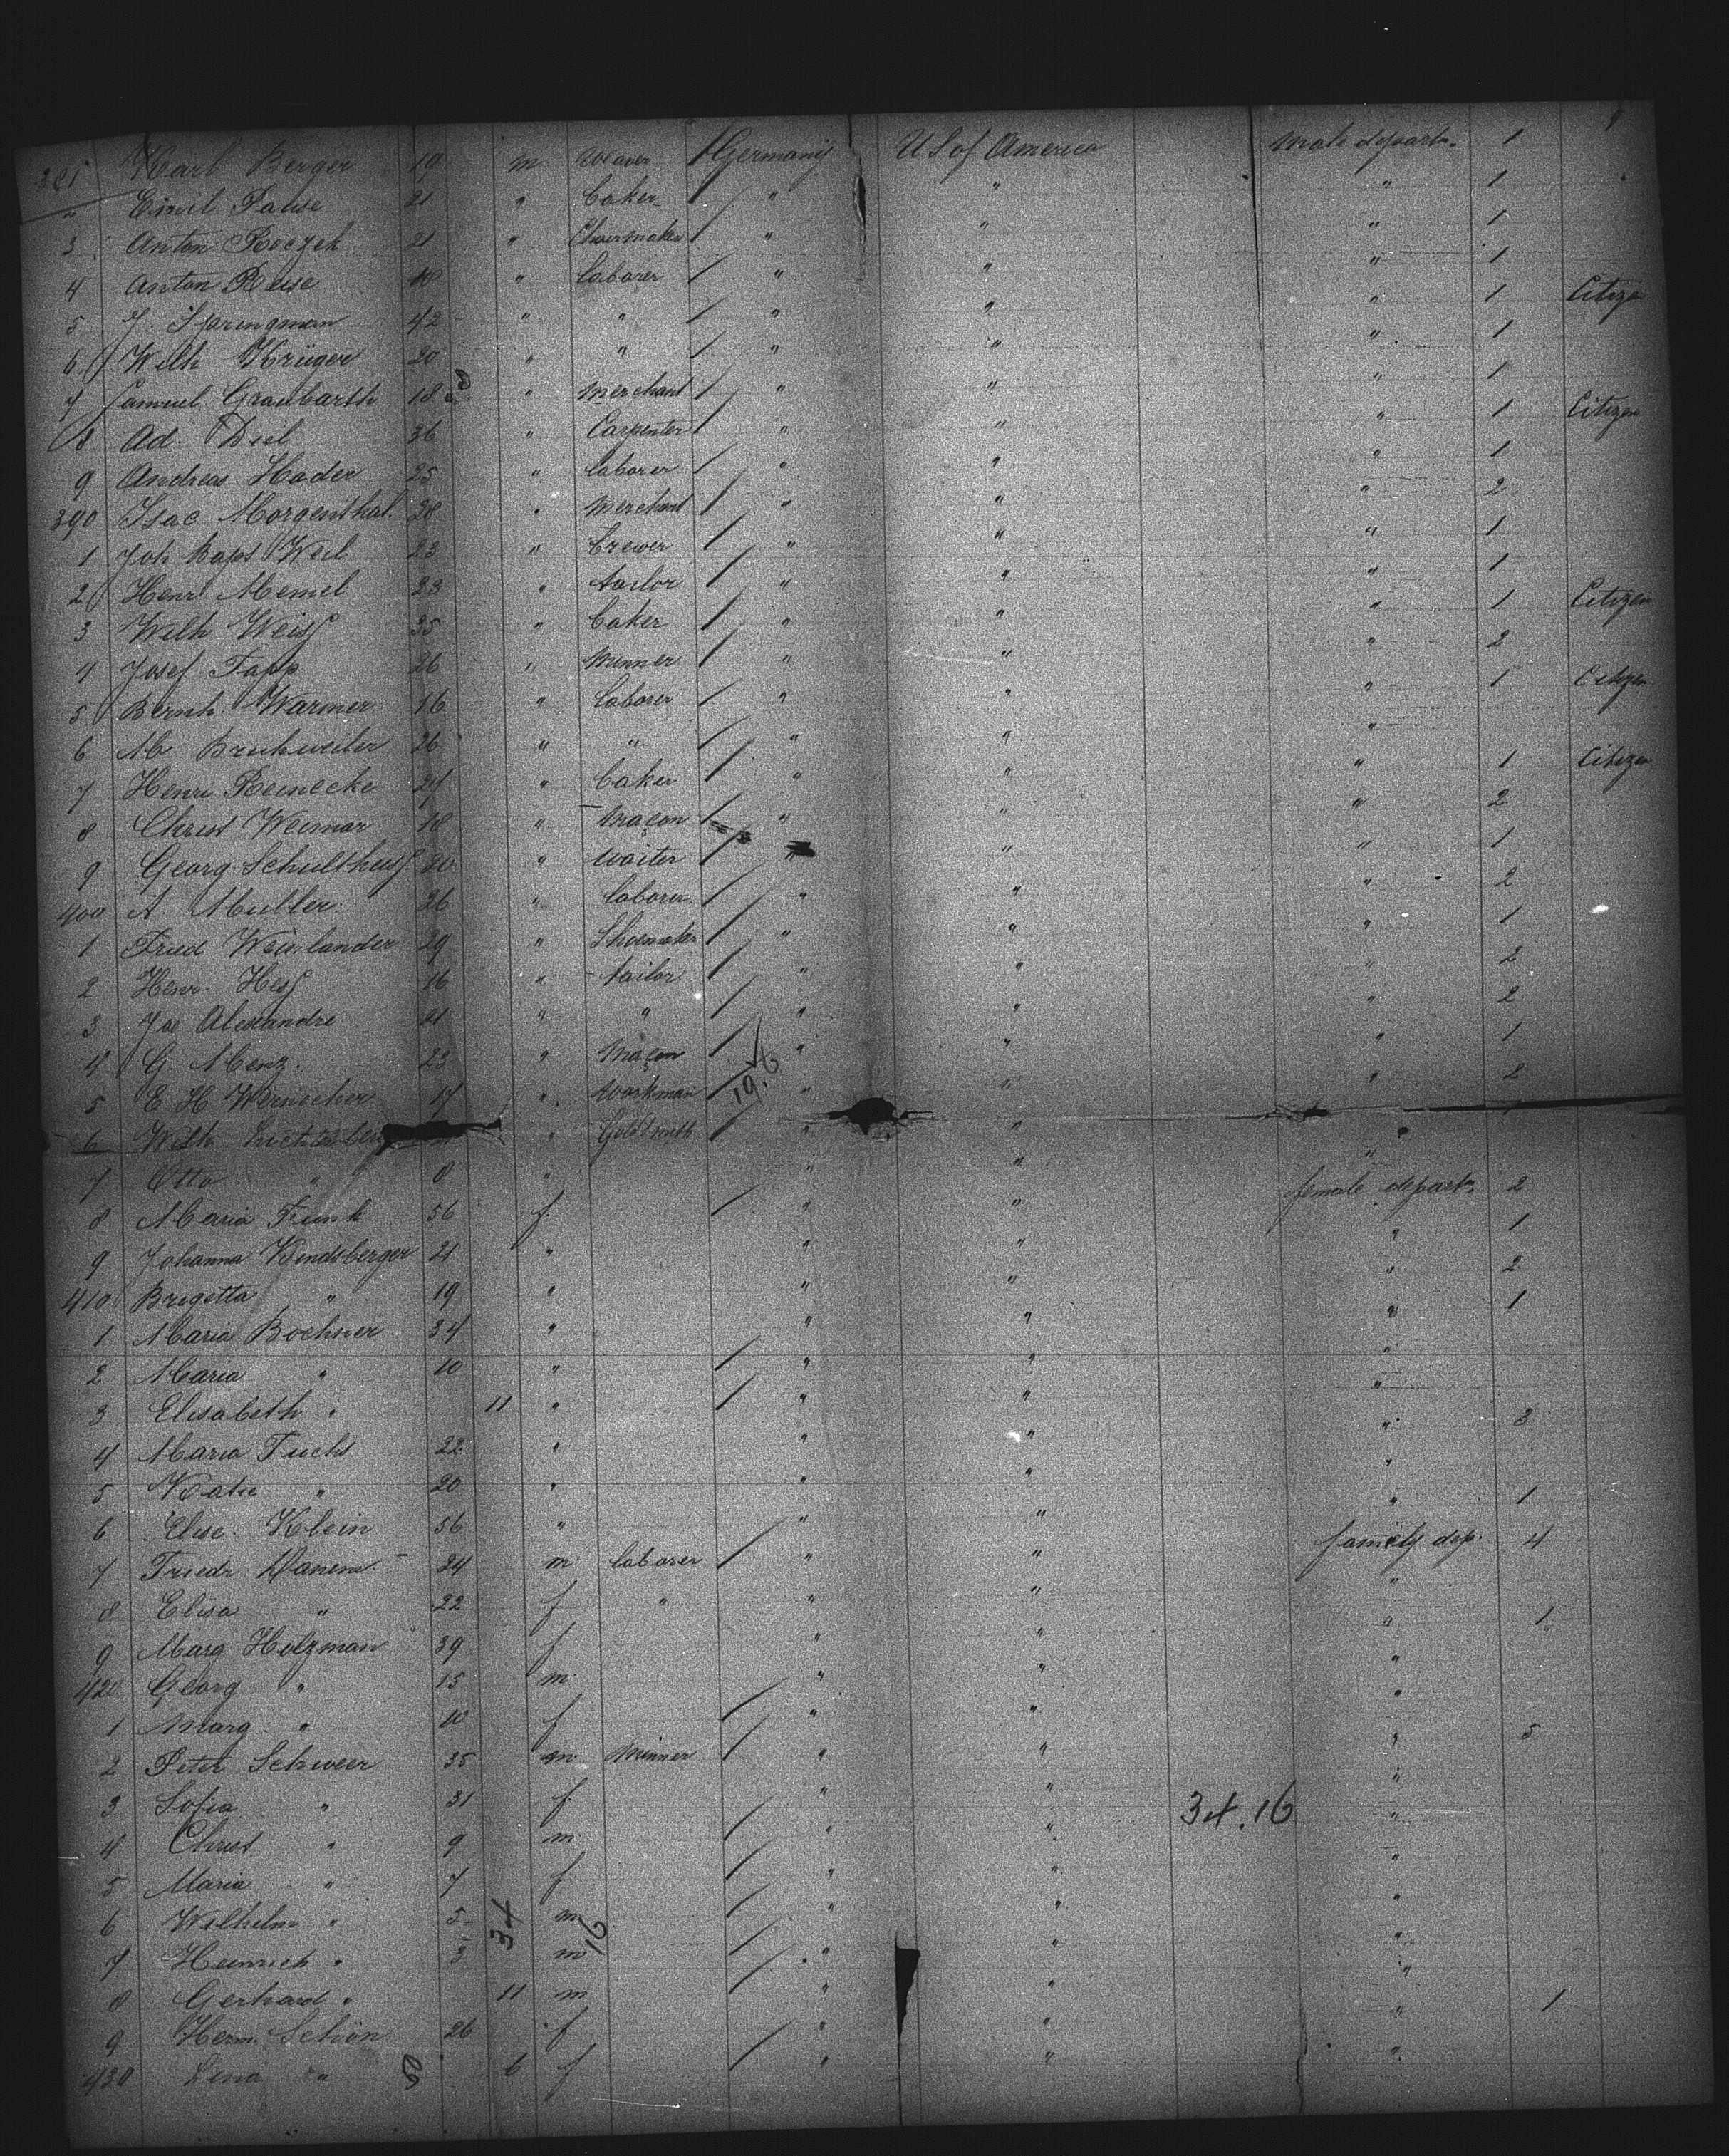 381 Karl Berger 19 m Weaver / Germany U S of America male depart. 1
2 Emil Pause 21 " baker / " " " 1
3 Anton Roczek 21 " Shoemaker / " " " 1
4 Anton Reise " laborer / " " " 1
5 J. Springman 42 " " / " " " 1 Citizen
6 Wilh Krüger 20 " " / " " " 1
7 Samuel Graubarth 18 " merchant / " " " 1
8 Ad. Diel 36 " Carpenter / " " " 1 Citizen
9 Andreas Hader 25 " laborer / " " " 1
390 Isac Morgenthal. 28 " merchant / " " " 2
1 Joh Bapt Weil 23 " brewer / " " " 1
2 Henr Memel 23 " tailor / " " " 1
3 Wilh Weiss 35 " baker / " " " 1 Citizen
4 Josef Tapp 26 " minner / " " " 2
5 Bernh Warmer 16 " laborer / " " " 1 Citizen
6 M. Bruhweiler 26 " " / " " "
7 Henri Reinecke " baker / " " " 1 Citizen
8 Christ Weimar 18 " maçon / " " " 2
9 Georg Schulthess 20 " waiter / " " " 1
400 A. Muller 26 " laborer / " " " 2
1 Fried Weinlander 29 " Shoemaker / " " " 1
2 Henr. Hess 16 " tailor / " " " 2
3 Joe Alexandre 21 " " / " " " 2
4 G. Menz. 23 " maçon / " " " 1
5 E H Wernecher 17 " workman / 19.6 " " " 2
6 Wilh " Goldsmith / " " "
7 Otto " 8 " " " "
8 Maria Funk 56 f. / " " female depart. 2
9 Johanna Kindsberger 21 " " " " 1
410 Brigetta " 19 " " " " 2
1 Maria Bochner 34 " " " " 1
2 Maria " 10 " / " " "
3 Elisabeth " 11 " / " " "
4 Maria Fuchs 22 " " " " 3
5 Katie " 20 " " " "
6 Elise Klein 56 " " " " 1
7 Friedr 24 m laborer / " " family dep. 4
8 Elisa " 22 f " " " "
9 Marg Holzman 39 f " " " 1
420 Georg " 15 m " " "
1 Marg. " 10 f / " " "
2 Peter Schweer 35 m minner / " " " 5
3 Sofia " 31 f " " "
34.16
4 Christ " 9 m / " " "
5 Maria " 7 f / " " "
6 Wilhelm " 5 m / " " "
34 16
7 Heinrich " 3 m / " " "
8 Gerhard " 11 m / " " "
9 Herm. Schön 26 f " " " 1
430 Lena " 6 f / " " "
50